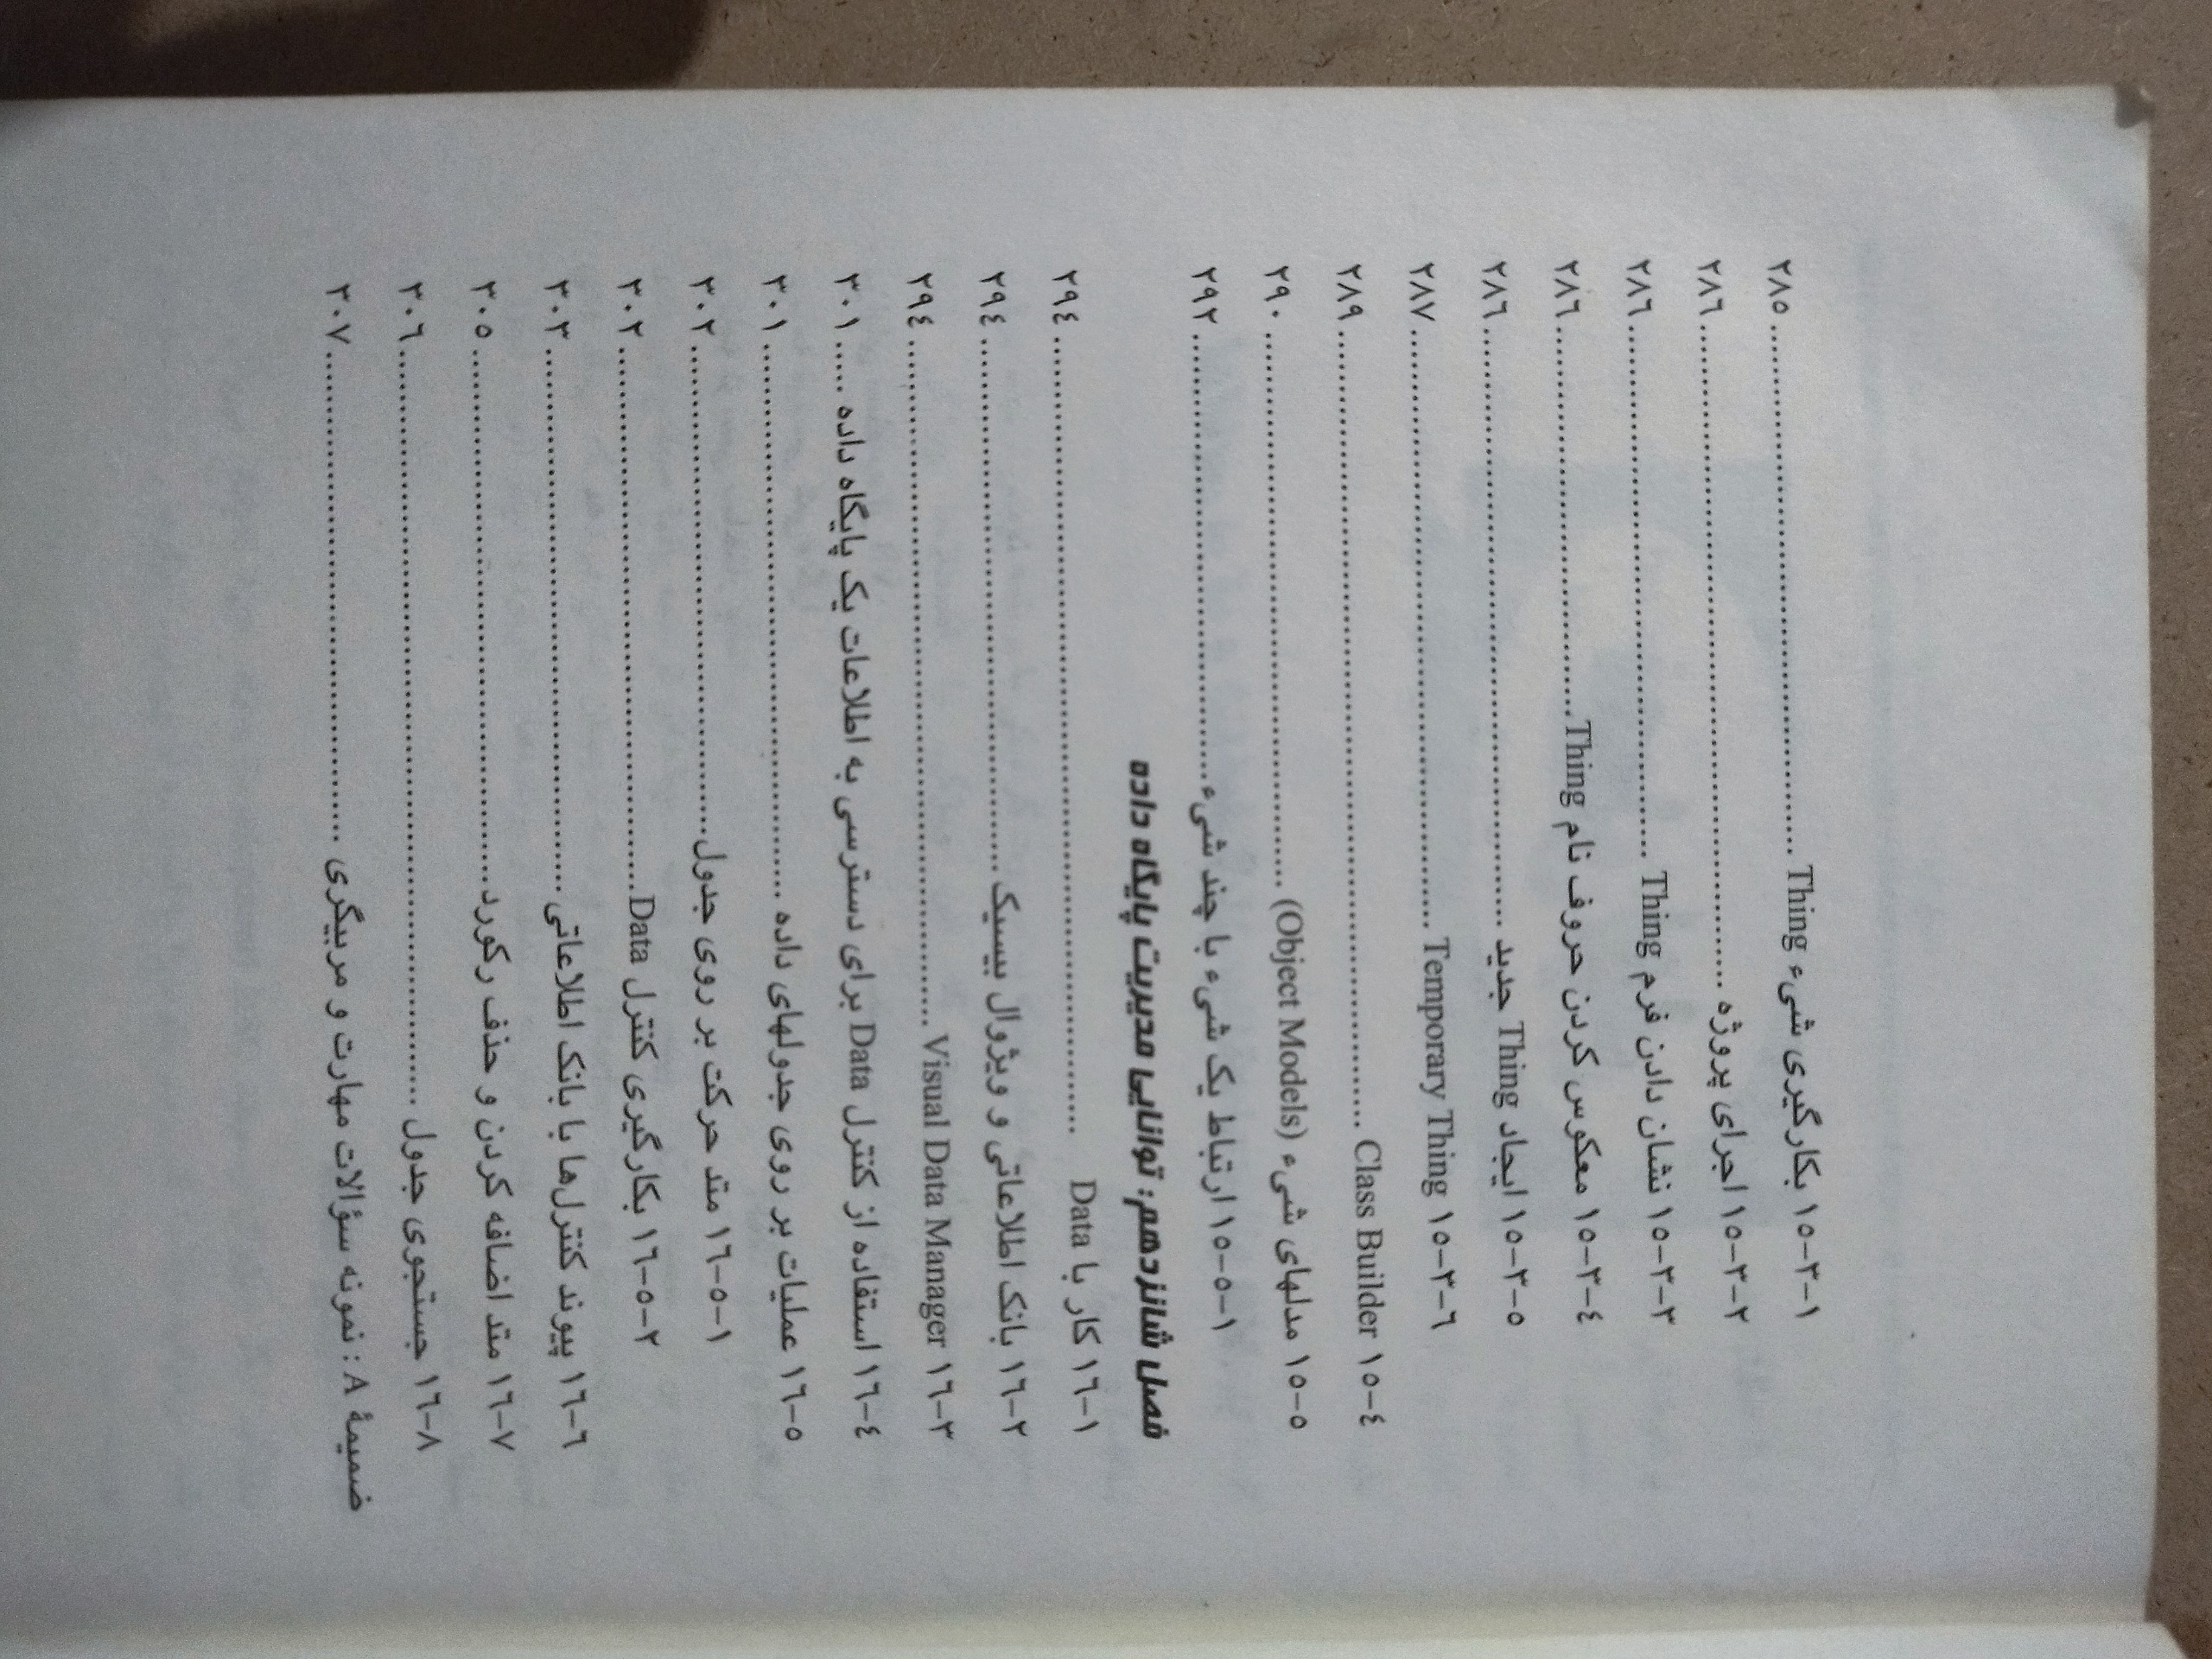 ۱۵-۳-۱ بکارگیری شیء Thing ........ ۲۸۵
۱۵-۳-۲ اجرای پروژه ........ ۲۸۶
۱۵-۳-۳ نشان دادن فرم Thing ........ ۲۸۶
۱۵-۳-٤ معکوس کردن حروف نام Thing ........ ۲۸۶
۱۵-۳-۵ ایجاد Thing جدید ........ ۲۸۶
۱۵-۳-۶ Temporary Thing ........ ۲۸۷
۱۵-٤ Class Builder ........ ۲۸۹
۱۵-۵ مدلهای شیء (Object Models) ........ ۲۹۰
۱۵-۵-۱ ارتباط یک شیء با چند شیء ........ ۲۹۲
فصل شانزدهم: توانایی مدیریت پایگاه داده
۱۶-۱ کار با Data ........ ۲۹٤
۱۶-۲ بانک اطلاعاتی و ویژوال بیسیک ........ ۲۹٤
۱۶-۳ Visual Data Manager ........ ۲۹٤
۱۶-٤ استفاده از کنترل Data برای دسترسی به اطلاعات یک پایگاه داده ..... ۳۰۱
۱۶-۵ عملیات بر روی جدولهای داده ........ ۳۰۱
۱۶-۵-۱ متد حرکت بر روی جدول ........ ۳۰۲
۱۶-۵-۲ بکارگیری کنترل Data ........ ۳۰۲
۱۶-۶ پیوند کنترل‌ها با بانک اطلاعاتی ........ ۳۰۳
۱۶-۷ متد اضافه کردن و حذف رکورد ........ ۳۰۵
۱۶-۸ جستجوی جدول ........ ۳۰۶
ضمیمهٔ A : نمونه سؤالات مهارت و مربیگری ........ ۳۰۷